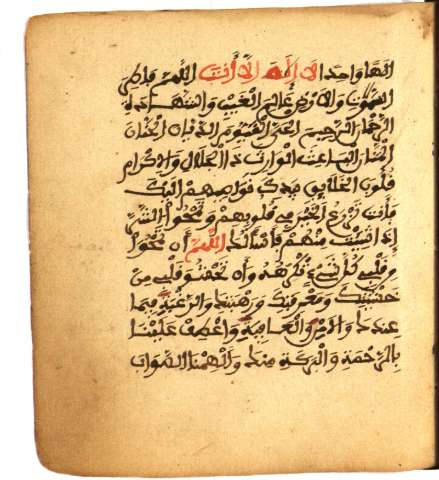 الها واحدا لا إله إلا أنت اللهم فاطر
السموات والارض عالم الغيب والشهادة
الرحمن الرحيم الحي القيوم الديان الحنان
المنان الباعث الوارث ذا الجلال والاكرام
قلوب الخلايق بيدك نواصيهم اليك
فأنت تزرع الخير في قلوبهم وتمحوا الشر
إذا شئت منهم فأسألك اللهم أن تمحوا
من قلبي كل شيء تكرهه وأن تحشو قلبي من
خشيتك ومعرفتك ورهبتك والرغبة فيما
عندك والامن والعافية واعطف علينا
بالرحمة والبركة منك والهمنا الصواب